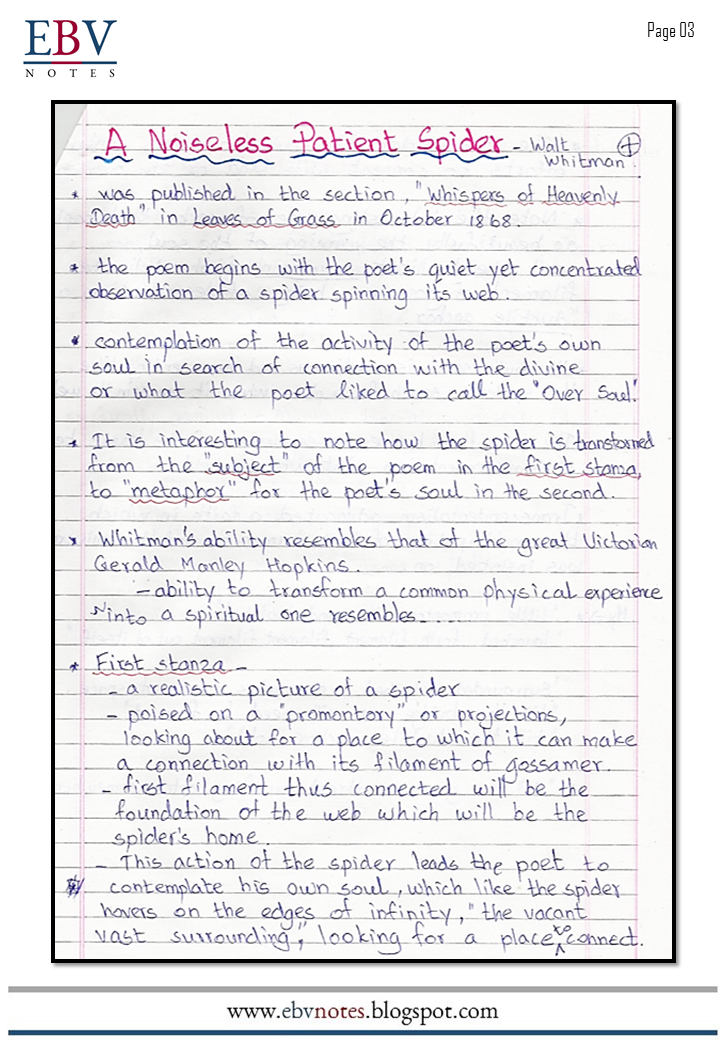 EBV
NOTES
Page 03
A Noiseless Patient Spider - Walt
Whitman.
* was published in the section, "Whispers of Heavenly
Death" in Leaves of Grass in October 1868.
* the poem begins with the poet's quiet yet concentrated
observation of a spider spinning its web.
* contemplation of the activity of the poet's own
soul in search of connection with the divine
or what the poet liked to call the "Over Soul".
* It is interesting to note how the spider is transformed
from the "subject" of the poem in the first stanza,
to "metaphor" for the poet's soul in the second.
* Whitman's ability resembles that of the great Victorian
Gerald Manley Hopkins.
- ability to transform a common physical experience
into a spiritual one resembles.....
* First stanza -
- a realistic picture of a spider
- poised on a "promontory" or projections,
looking about for a place to which it can make
a connection with its filament of gossamer.
- first filament thus connected will be the
foundation of the web which will be the
spider's home.
- This action of the spider leads the poet to
contemplate his own soul, which like the spider
hovers on the edges of infinity, "the vacant
vast surrounding", looking for a place to connect.
www.ebvnotes.blogspot.com